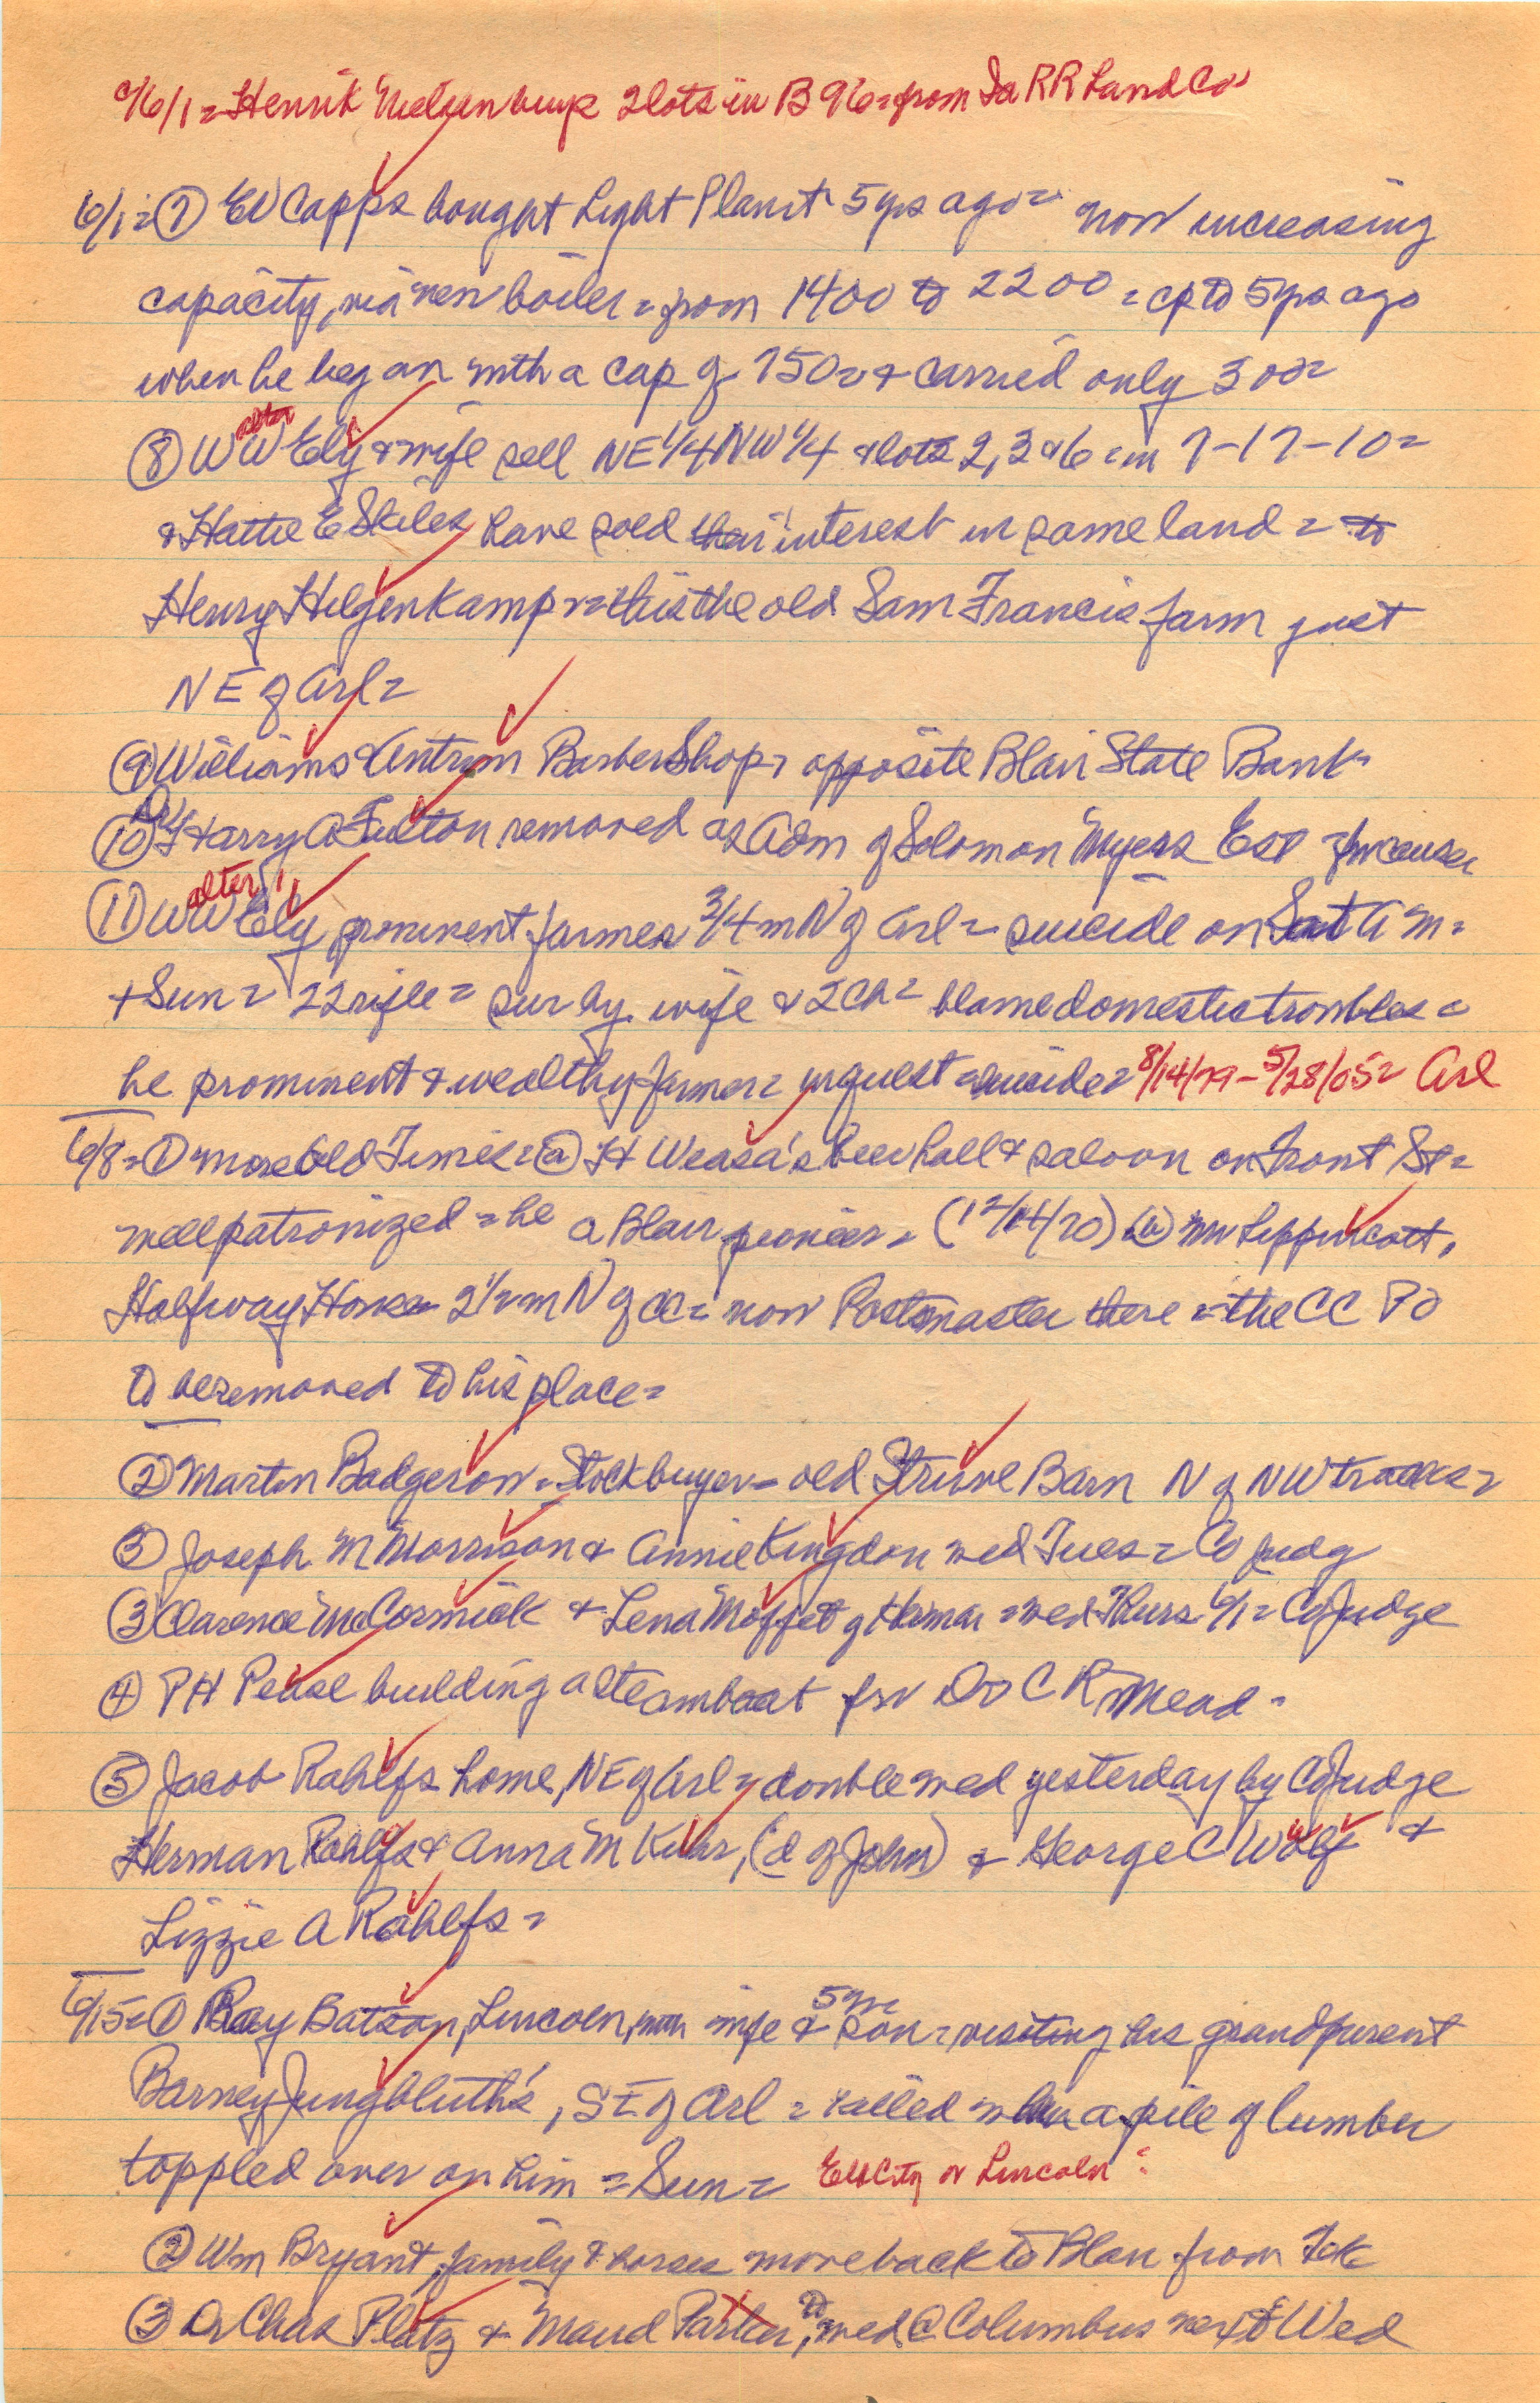 6/1 = Henrik Nielsen buys 2 lots in B 96 = from Ia RR Land Co =
6/1 = ⑦ EW Capps bought Light Plant 5 yrs ago = now increasing
capacity, via new boiler = from 1400 to 2200 = cp to 5 yrs ago
when he began with a cap of 750 = & carried only 300 =
⑧ W Walter Ely & wife sell NE 1/4 NW 1/4 & lots 2, 3 & 6 = in 7-17-10 =
& Hattie E Skiles have sold their interest in same land = to
Henry Hilgenkamp = this the old Sam Francis farm just
NE of Arl =
⑨ Williams & Antrim Barber Shop, opposite Blair State Bank =
⑩ Harry A Fulton removed as Adm of Solomon Myers Est = for cause
⑪ W Walter Ely prominent farmer 3/4 m N of Arl = suicide on Sat AM =
+ Sun = 22 rifle = sur by wife & 2 ch = blame domestic troubles =
he prominent & wealthy farmer = inquest = suicide = 8/14/79 - 5/28/05 = Arl
6/8 = ① More Old Times = ⓐ H Weasa's beer hall & saloon on Front St =
well patronized = he a Blair pioneer = (12/14/70) ⓑ Mr Lippincott,
Halfway House 2 1/2 m N of CC = now Postmaster there = the CC PO
to be removed to his place =
② Martin Badgerow = Stockbuyer = old Struve Barn N of NW tracks =
③ Joseph M Morrison & Annie Kingdon wed Tues = Co Judg
③ Clarence McCormick & Lena Moffet of Herman = wed Thurs 6/1 = Co Judge
④ PH Pease building a steamboat for Dr CR Mead =
⑤ Jacob Rahlfs home, NE of Arl = double wed yesterday by Co Judge
Herman Rahlfs & Anna M Kuhr, (d of John) & George C Wolf &
Lizzie A Rahlfs =
6/15 = ① Ray Batson, Lincoln, with wife & 5 yr son = visiting his grandparent
Barney Jungbluth's, SE of Arl = killed when a pile of lumber
toppled over on him = Sun = Elk City or Lincoln =
② Wm Bryant, family & horses move back to Blair from Tek
③ Dr Chas Platz & Maud Parker, to wed @ Columbus next Wed